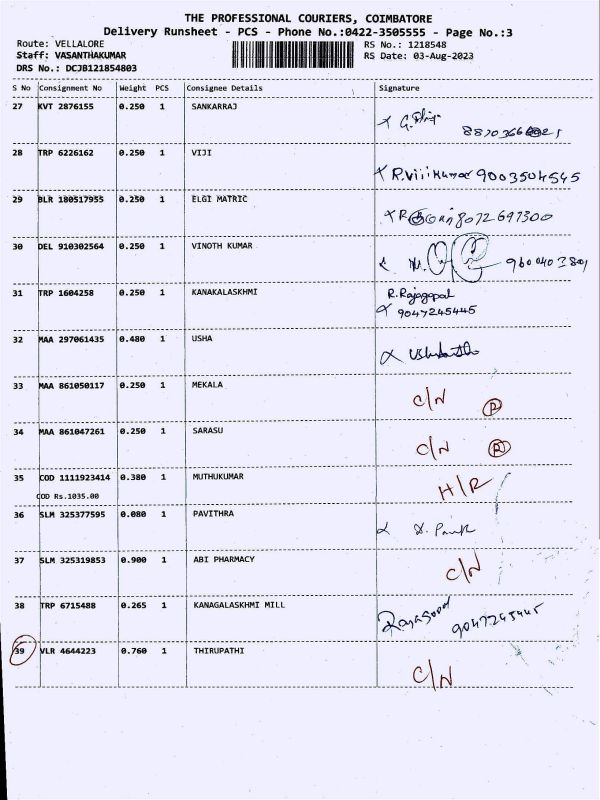 THE PROFESSIONAL COURIERS, COIMBATORE
Delivery Runsheet - PCS - Phone No.:0422-3505555 - Page No.:3
Route: VELLALORE RS No.: 1218548
Staff: VASANTHAKUMAR RS Date: 03-Aug-2023
DRS No.: DCJB121854803
S No Consignment No Weight PCS Consignee Details Signature
27 KVT 2876155 0.250 1 SANKARRAJ
28 TRP 6226162 0.250 1 VIJI R.VijiKumar 9003504545
29 BLR 180517955 0.250 1 ELGI MATRIC 8072697300
30 DEL 910302564 0.250 1 VINOTH KUMAR 9600403801
31 TRP 1604258 0.250 1 KANAKALASKHMI R.Rajagopal
9047245445
32 MAA 297061435 0.480 1 USHA
33 MAA 861050117 0.250 1 MEKALA C/N P
34 MAA 861047261 0.250 1 SARASU C/N
35 COD 1111923414 0.380 1 MUTHUKUMAR H/R
COD Rs.1035.00
36 SLM 325377595 0.080 1 PAVITHRA
37 SLM 325319853 0.900 1 ABI PHARMACY C/N
38 TRP 6715488 0.265 1 KANAGALASKHMI MILL 9047245445
39 VLR 4644223 0.760 1 THIRUPATHI C/N